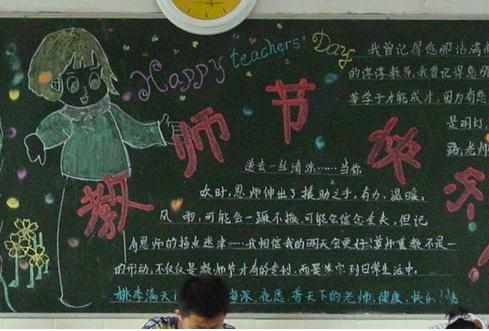 Happy teachers' Day
教师节快乐
我曾记得您那沾满
的谆谆教导,我曾记得您
等学子才能成才,因为有您
是明灯
路,老师
送去一丝清凉……当你
时,恩师伸出了援助之手,有力、温暖。
风雨,可能会一蹶不振,可能会信念丢失,但记
有恩师的指点迷津……我相信我的明天会更好!尊师重教不是一
的行动,不仅仅是教师节才有的专利,而要落实到日常生活中。
桃李满天 海深,祝愿 天下的老师,健康、快乐!